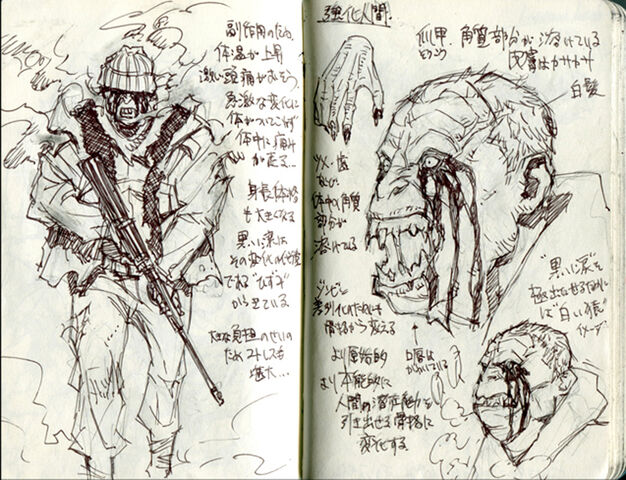 副作用のため
体温が上昇
激しい頭痛がおそう。
急激な変化に
体がついてこれず
体中に痛み
が走る…
身長、体格
も大きくなる
黒い涙は
その変化の代償
である"ひずみ"
からきている
大きな負担のせいの
ため ストレスも
増大…
強化人間
爪、甲、角質部分が溶けている
皮膚はカサカサ
白髪
ツメ・歯
など、
体中の角質
部分が
溶けている
ゾンビと
差別化のためにも
骨格から変える
より原始的
より本能的に
人間の潜在能力を
引き出せる骨格に
変化する。
口唇は
かわいている
"黒い涙"を
極出たせるために
は"白い猿"
イメージ